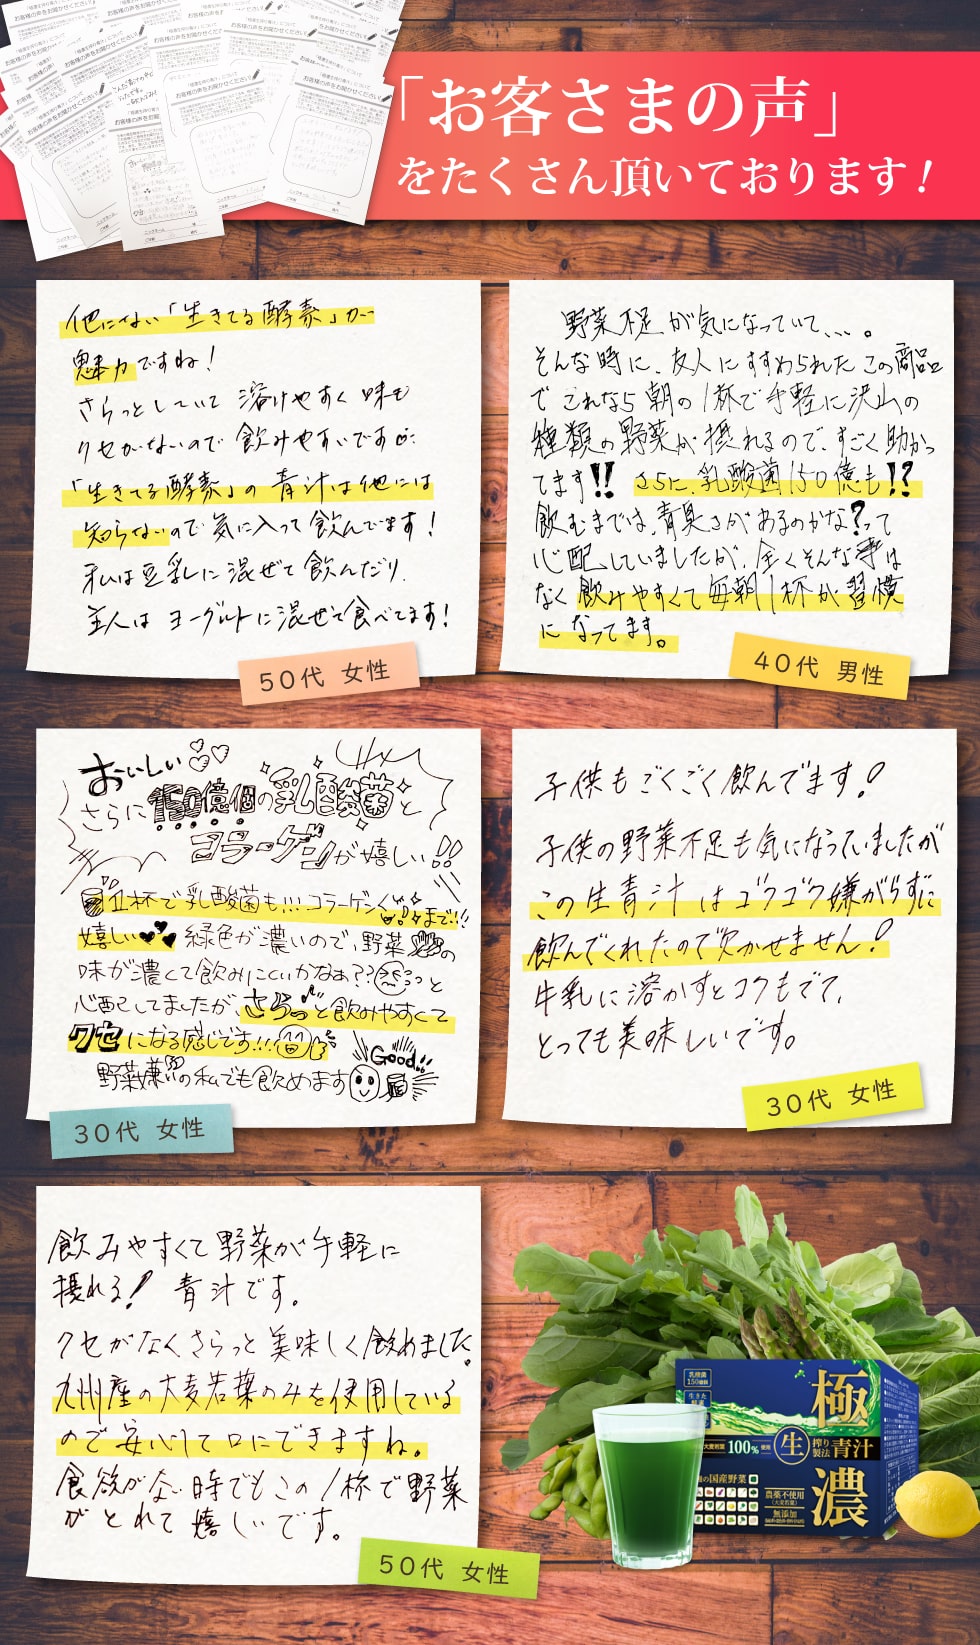 「お客さまの声」
をたくさん頂いております!
他にない「生きてる酵素」が
魅力ですね!
さらっとしていて 溶けやすく 味も
クセがないので 飲みやすいです
「生きてる酵素」の 青汁は他には
知らないので 気に入って 飲んでます!
私は豆乳に混ぜて飲んだり、
主人は ヨーグルトに混ぜて食べてます!
50代 女性
野菜不足が気になっていて、、、。
そんな時に、友人にすすめられたこの商品
で これなら 朝の1杯で手軽に沢山の
種類の野菜が摂れるので、すごく助かっ
てます!! さらに、乳酸菌150億も!?
飲むまでは、青臭さがあるのかな?って
心配していましたが、全くそんな事は
なく 飲みやすくて毎朝1杯が習慣
になってます。
40代 男性
おいしい
さらに150億個の乳酸菌と
コラーゲンが嬉しい!!
1杯で乳酸菌も!!! コラーゲンまで!!
嬉しい 緑色が濃いので、野菜の
味が濃くて飲みにくいかなぁ??っと
心配してましたが、さらっと飲みやすくて
クセになる感じです!!!
Good!!
野菜嫌いの私でも飲めます
30代 女性
子供もごくごく飲んでます!
子供の野菜不足も気になっていましたが
この生青汁はゴクゴク嫌がらずに
飲んでくれたので欠かせません!
牛乳に溶かすとコクもでて、
とっても美味しいです。
30代 女性
飲みやすくて野菜が手軽に
摂れる! 青汁です。
クセがなく、さらっと美味しく飲めました。
九州産の大麦若葉のみを使用している
ので安心して口にできますね。
食欲がない時でもこの1杯で野菜
がとれて嬉しいです。
50代 女性
乳酸菌
150億個
生きた
極
濃
生
搾り
製法
青汁
大麦若葉 100% 使用
の国産野菜
農薬不使用
(大麦若葉)
無添加